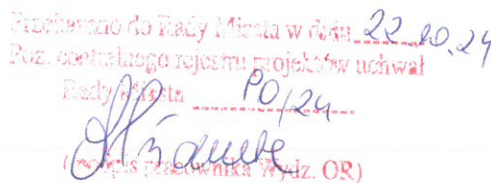 Przekazano do Rady Miasta w dniu 22.10.24
Poz. centralnego rejestru projektów uchwał
Rady Miasta PO/24
(podpis pracownika Wydz. OR)